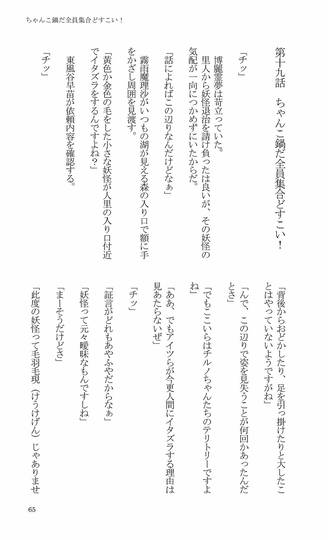 ちゃんこ鍋だ全員集合どすこい！
第十九話　ちゃんこ鍋だ全員集合どすこい！
「チッ」
　博麗霊夢は苛立っていた。
　里人から妖怪退治を請け負ったは良いが、その妖怪の
気配が一向につかめずにいたからだ。
「話によればこの辺りなんだけどなぁ」
　霧雨魔理沙がいつもの湖が見える森の入り口で額に手
をかざし周囲を見渡す。
「黄色か金色の毛をした小さな妖怪が人里の入り口付近
でイタズラをするんですよね？」
　東風谷早苗が依頼内容を確認する。
「チッ」
「背後からおどかしたり、足を引っ掛けたりと大したこ
とはやっていないようですがね」
「んで、この辺りで姿を見失うことが何回かあったんだ
とさ」
「でもここいらはチルノちゃんたちのテリトリーですよ
ね」
「ああ、でもアイツらが今更人間にイタズラする理由は
見あたらないぜ」
「チッ」
「証言がどれもあやふやだからなぁ」
「妖怪って元々曖昧なもんですしね」
「まーそうだけどさ」
「此度の妖怪って毛羽毛現（けうけげん）じゃありませ
65